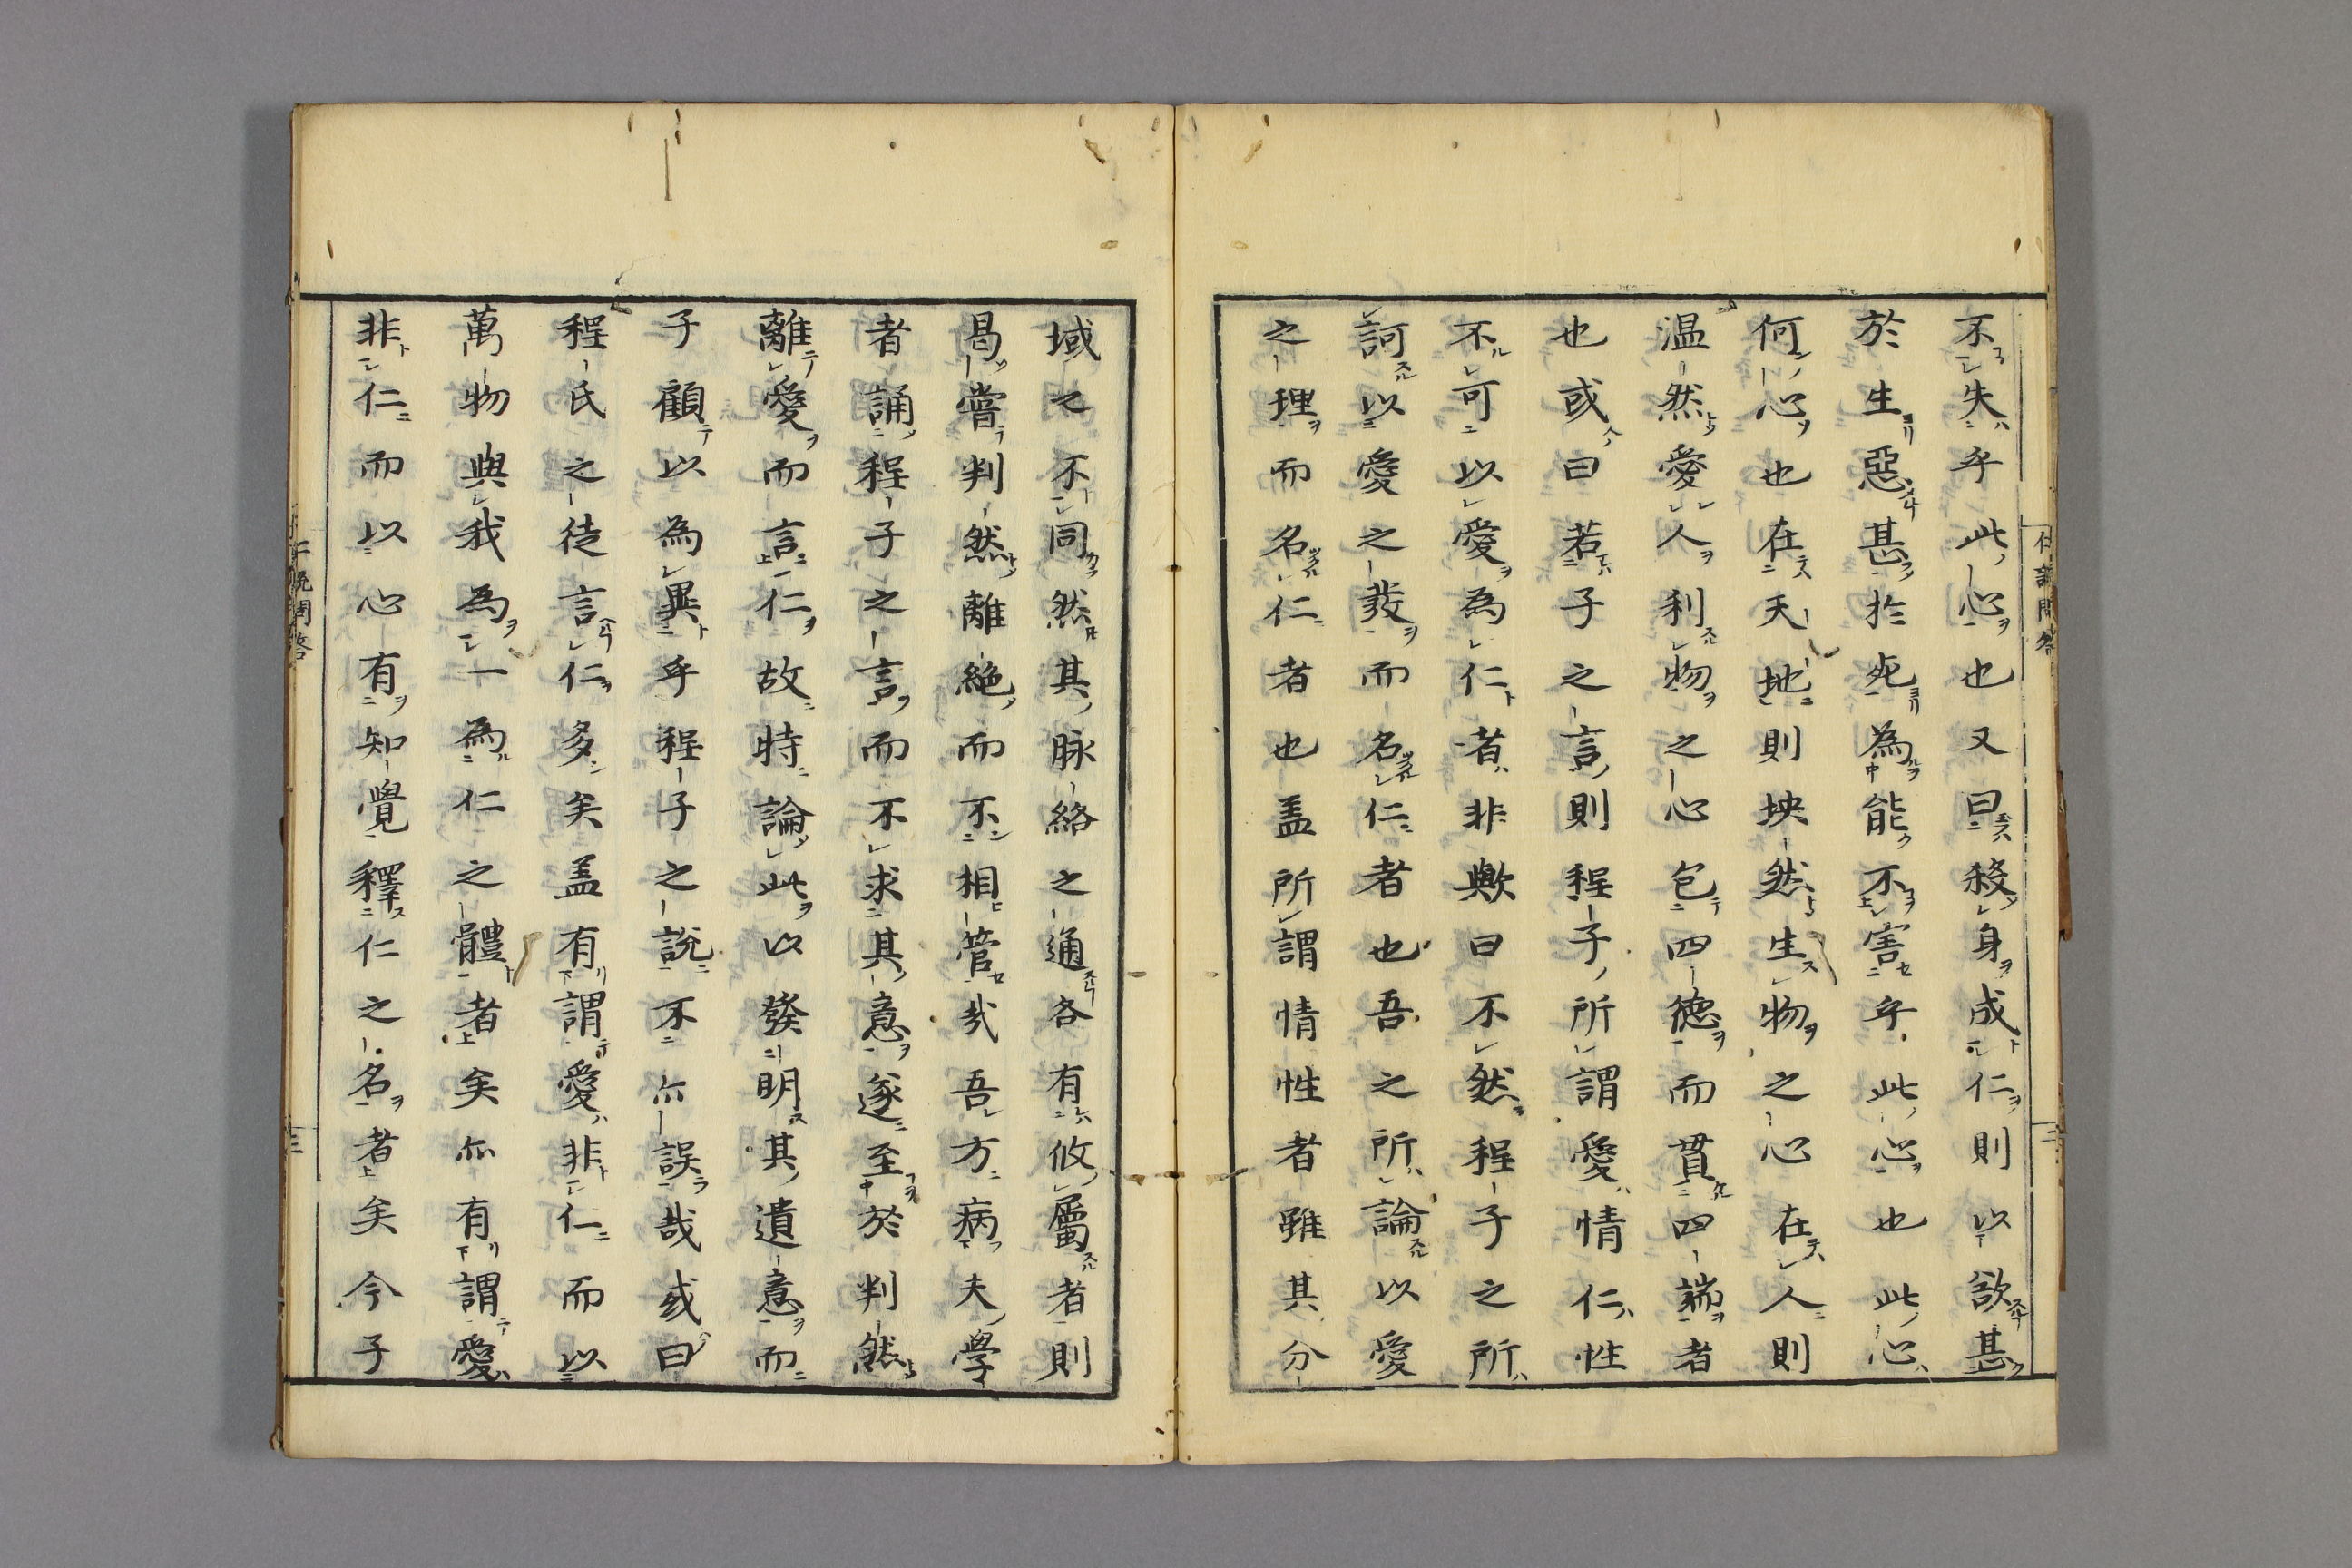 不失乎此心也又曰殺身成仁則以欲甚
於生惡甚於死為能不害乎此心也此心
何心也在天地則坱然生物之心在人則
温然愛人利物之心包四德而貫四端者
也或曰若子之言則程子所謂愛情仁性
不可以愛為仁者非歟曰不然程子之所
訶以愛之發而名仁者也吾之所論以愛
之理而名仁者也盖所謂情性者雖其分
域之不同然其脉絡之通各有攸屬者則
曷嘗判然離絶而不相管哉吾方病夫學
者誦程子之言而不求其意遂至於判然
離愛而言仁故特論此以發明其遺意而
子顧以為異乎程子之說不亦誤哉或曰
程氏之徒言仁多矣盖有謂愛非仁而以
萬物與我為一為仁之體者矣亦有謂愛
非仁而以心有知覺釋仁之名者矣今子
仁說問答 二
仁說問答 三